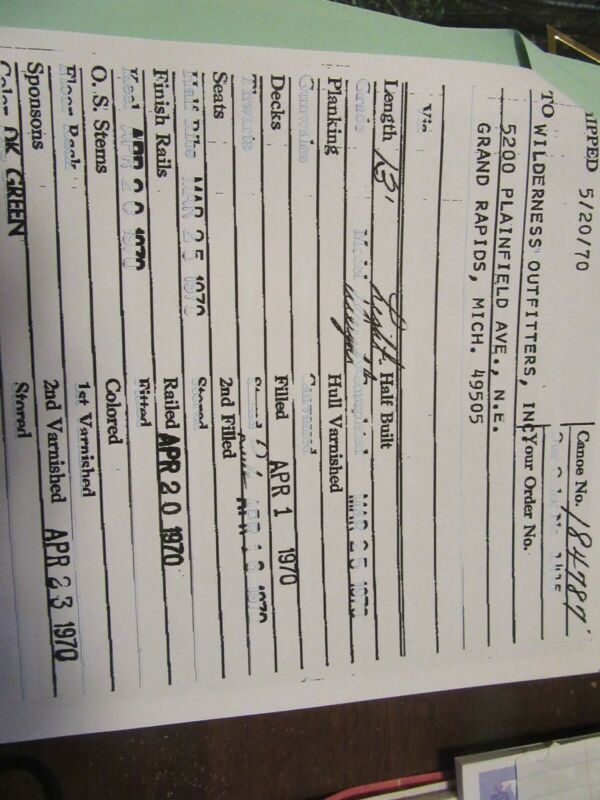 SHIPPED 5/20/70 Canoe No. 184787
TO WILDERNESS OUTFITTERS, INC. Your Order No.
5200 PLAINFIELD AVE., N.E.
GRAND RAPIDS, MICH. 49505
Via
Length 13' Light Half Built
Grade Model weight Completed MAR 25 1970
Planking Hull Varnished
Gunwales Canvassed
Decks Filled APR 1 1970
Thwarts Stored
Seats 2nd Filled
Half Ribs MAR 25 1970 Stored
Finish Rails Railed APR 20 1970
Keel APR 20 1970 Fitted
O. S. Stems Colored
Floor Rack 1st Varnished
Sponsons 2nd Varnished APR 23 1970
Color DK GREEN Stored